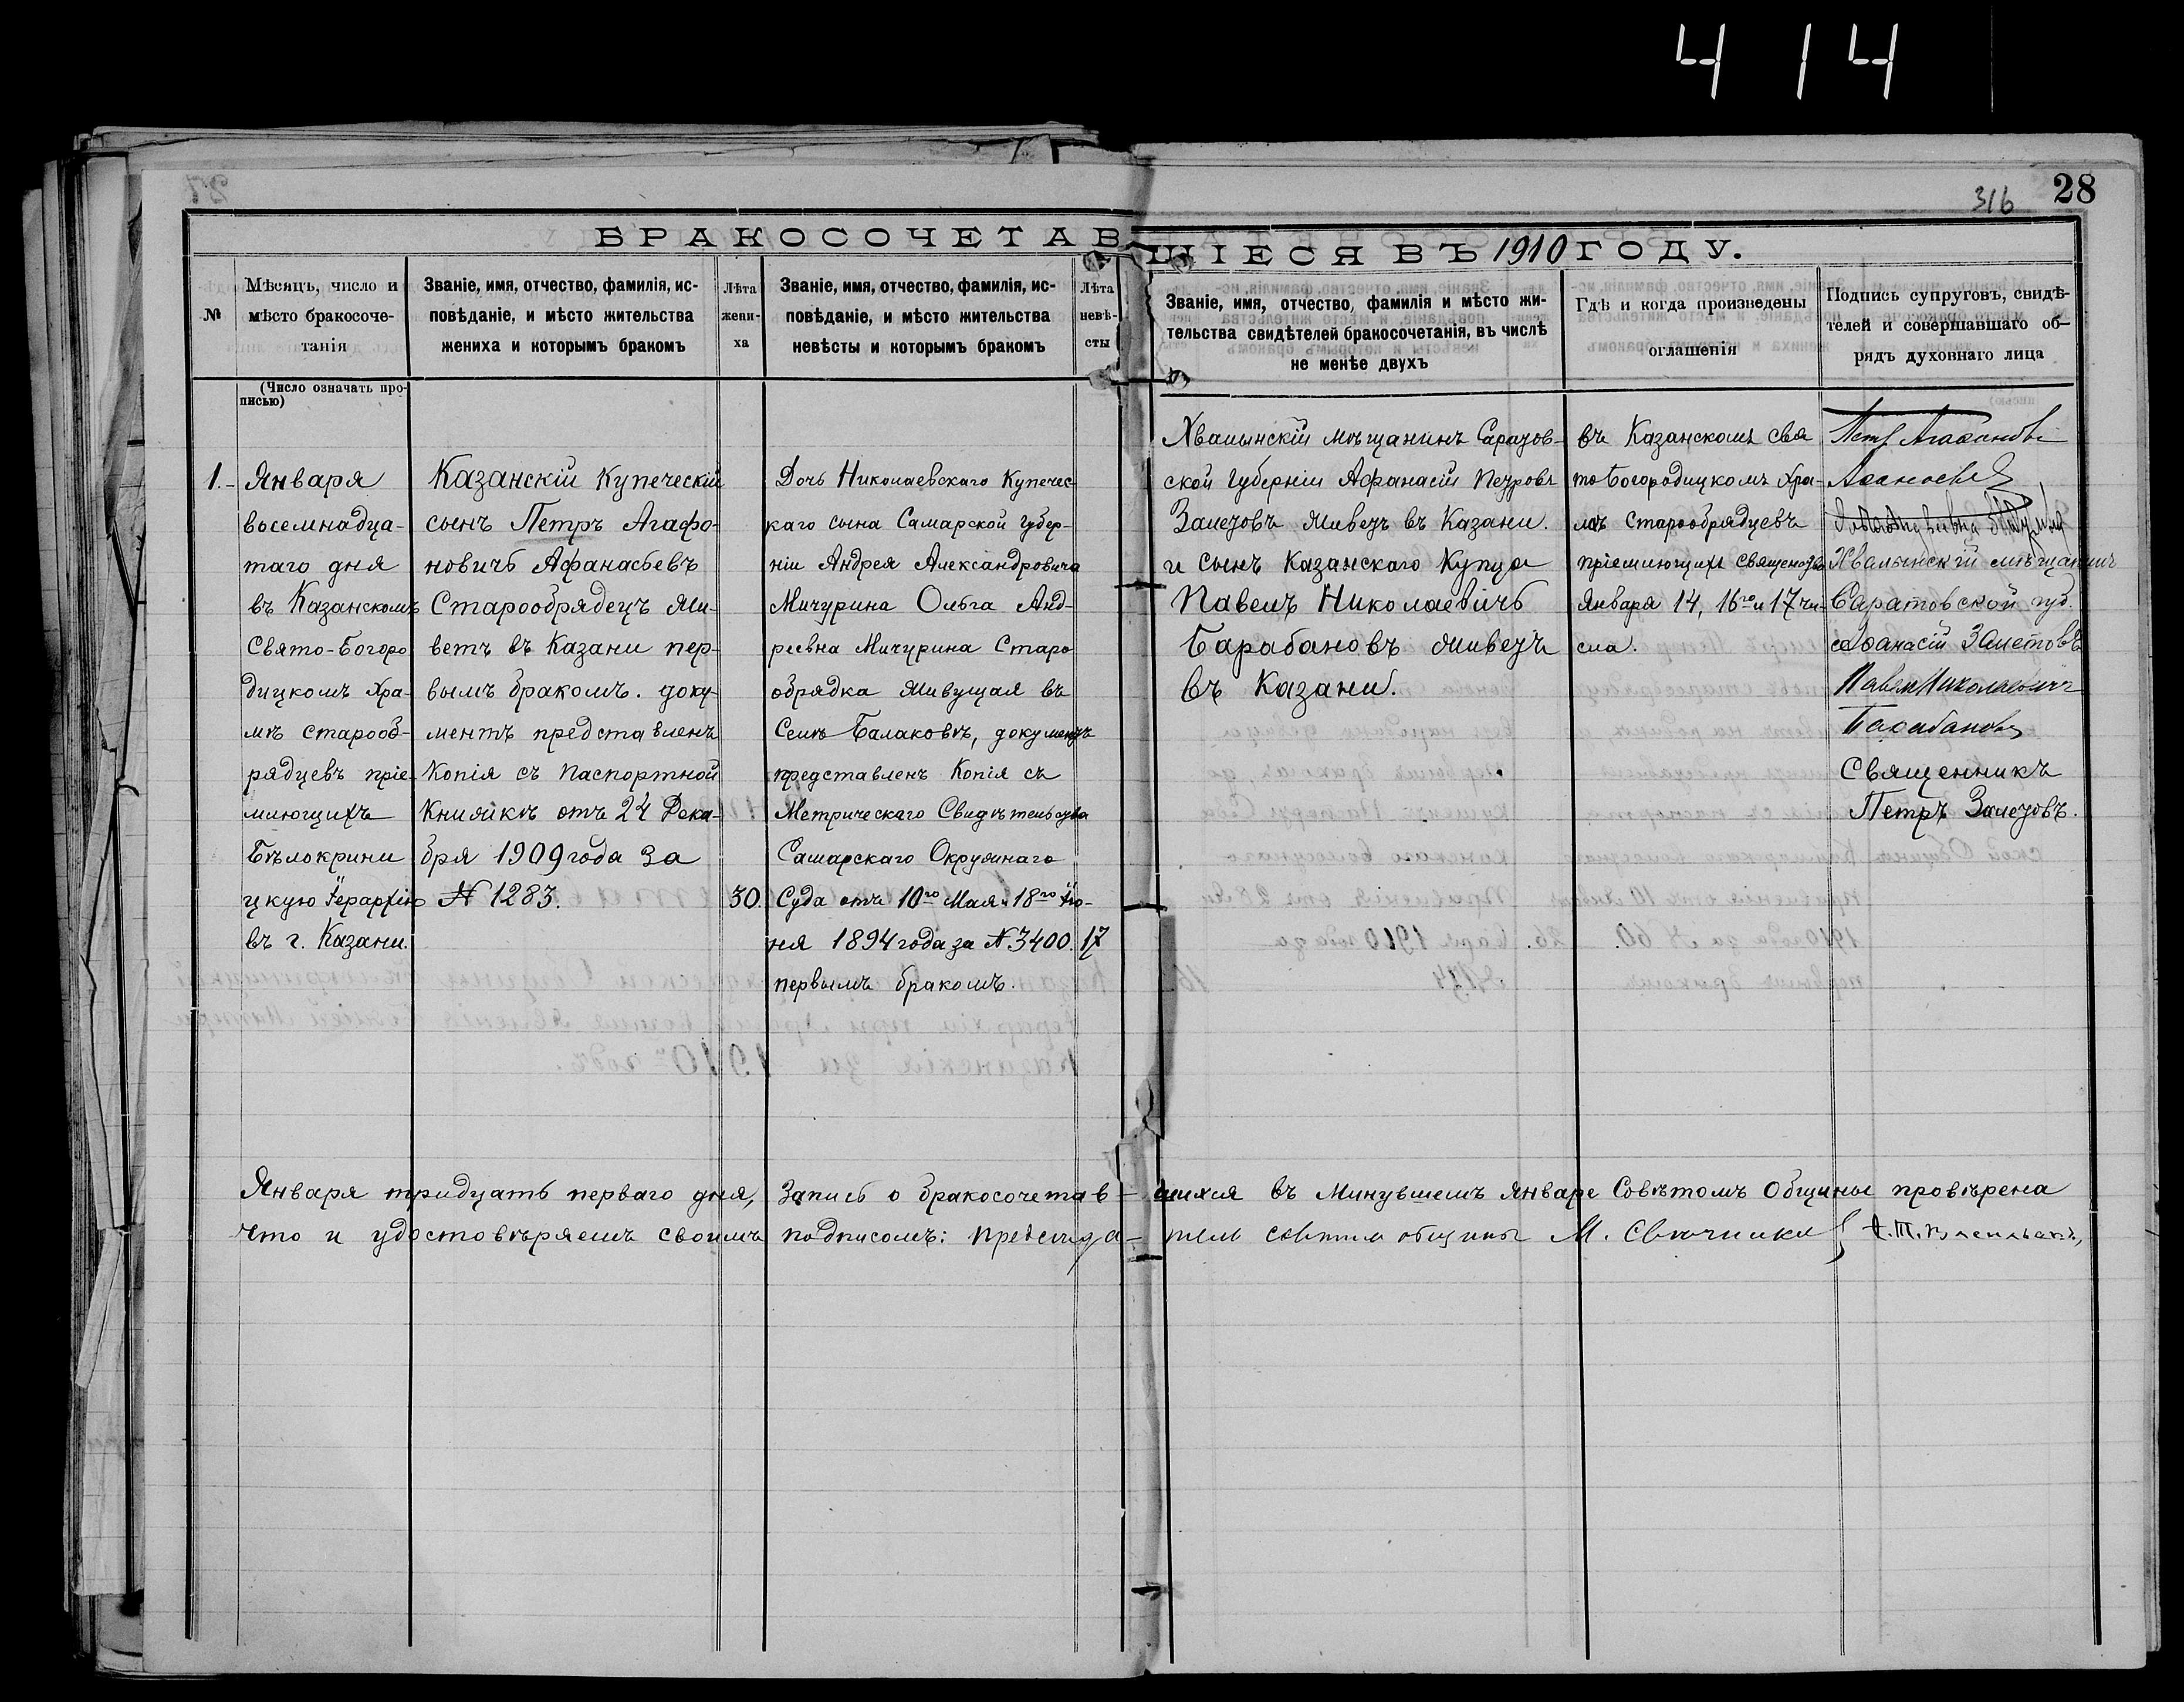 4 14
316
28
БРАКОСОЧЕТАВШІЕСЯ ВЪ 1910 ГОДУ.
№
Мѣсяцъ, число и
мѣсто бракосоче-
танія
(Число означать про-
писью)
Званіе, имя, отчество, фамилія, ис-
повѣданіе, и мѣсто жительства
жениха и которымъ бракомъ
Лѣта
жени-
ха
Званіе, имя, отчество, фамилія, ис-
повѣданіе, и мѣсто жительства
невѣсты и которымъ бракомъ
Лѣта
невѣ-
сты
Званіе, имя, отчество, фамилія и мѣсто жи-
тельства свидѣтелей бракосочетанія, въ числѣ
не менѣе двухъ
Гдѣ и когда произведены
оглашенія
Подпись супруговъ, свидѣ-
телей и совершавшаго об-
рядъ духовнаго лица
1.-
Января
восемнадца-
таго дня
въ Казанскомъ
Свято-Богоро
дицкомъ Хра-
мѣ старооб-
рядцевъ пріе-
млющихъ
Бѣлокрини
цкую Іерархію
въ г. Казани.
Казанскій Купеческій
сынъ Петръ Агафо-
новичъ Афанасьевъ
Старообрядецъ Жи-
ветъ въ Казани пер-
вымъ бракомъ. доку-
ментъ представленъ
Копія съ паспортной
Книжкѣ отъ 24 Дека-
бря 1909 года за
№ 1283.
30.
Дочь Николаевскаго Купечес-
каго сына Самарской Губер-
ніи Андрея Александровича
Мичурина Ольга Анд-
реевна Мичурина Старо
обрядка Живущая въ
Селѣ Балаковѣ, документъ
представленъ Копія съ
Метрическаго Свидѣтельства
Самарскаго Окружнаго
Суда отъ 10го Мая и 18го Ію-
ня 1894 года за № 3400.
первымъ бракомъ.
17
Хвалынскій мѣщанинъ Саратов-
ской Губерніи Афанасій Петровъ
Залетовъ живетъ въ Казани.
и сынъ Казанскаго Купца
Павелъ Николаевичъ
Барабановъ живетъ
въ Казани.
въ Казанскомъ свя
тобогородицкомъ Хра-
мѣ Старообрядцевъ
пріемлющихъ священство
Января 14, 16го и 17 чи-
сла.
Петръ Агафоновъ
Афанасьев
Хвалынскій мѣщанинъ
Саратовской губ.
Афанасій Залетовъ
Павелъ Николаевичъ
Барабановъ
Священникъ
Петръ Залетовъ.
Января тридцать перваго дня, Запись о бракосочетав-шихся въ Минувшемъ Январе Совѣтомъ Общины провѣрена
Что и удостовѣряемъ своимъ подписомъ: председа-тель совѣта общины М. Свѣчников